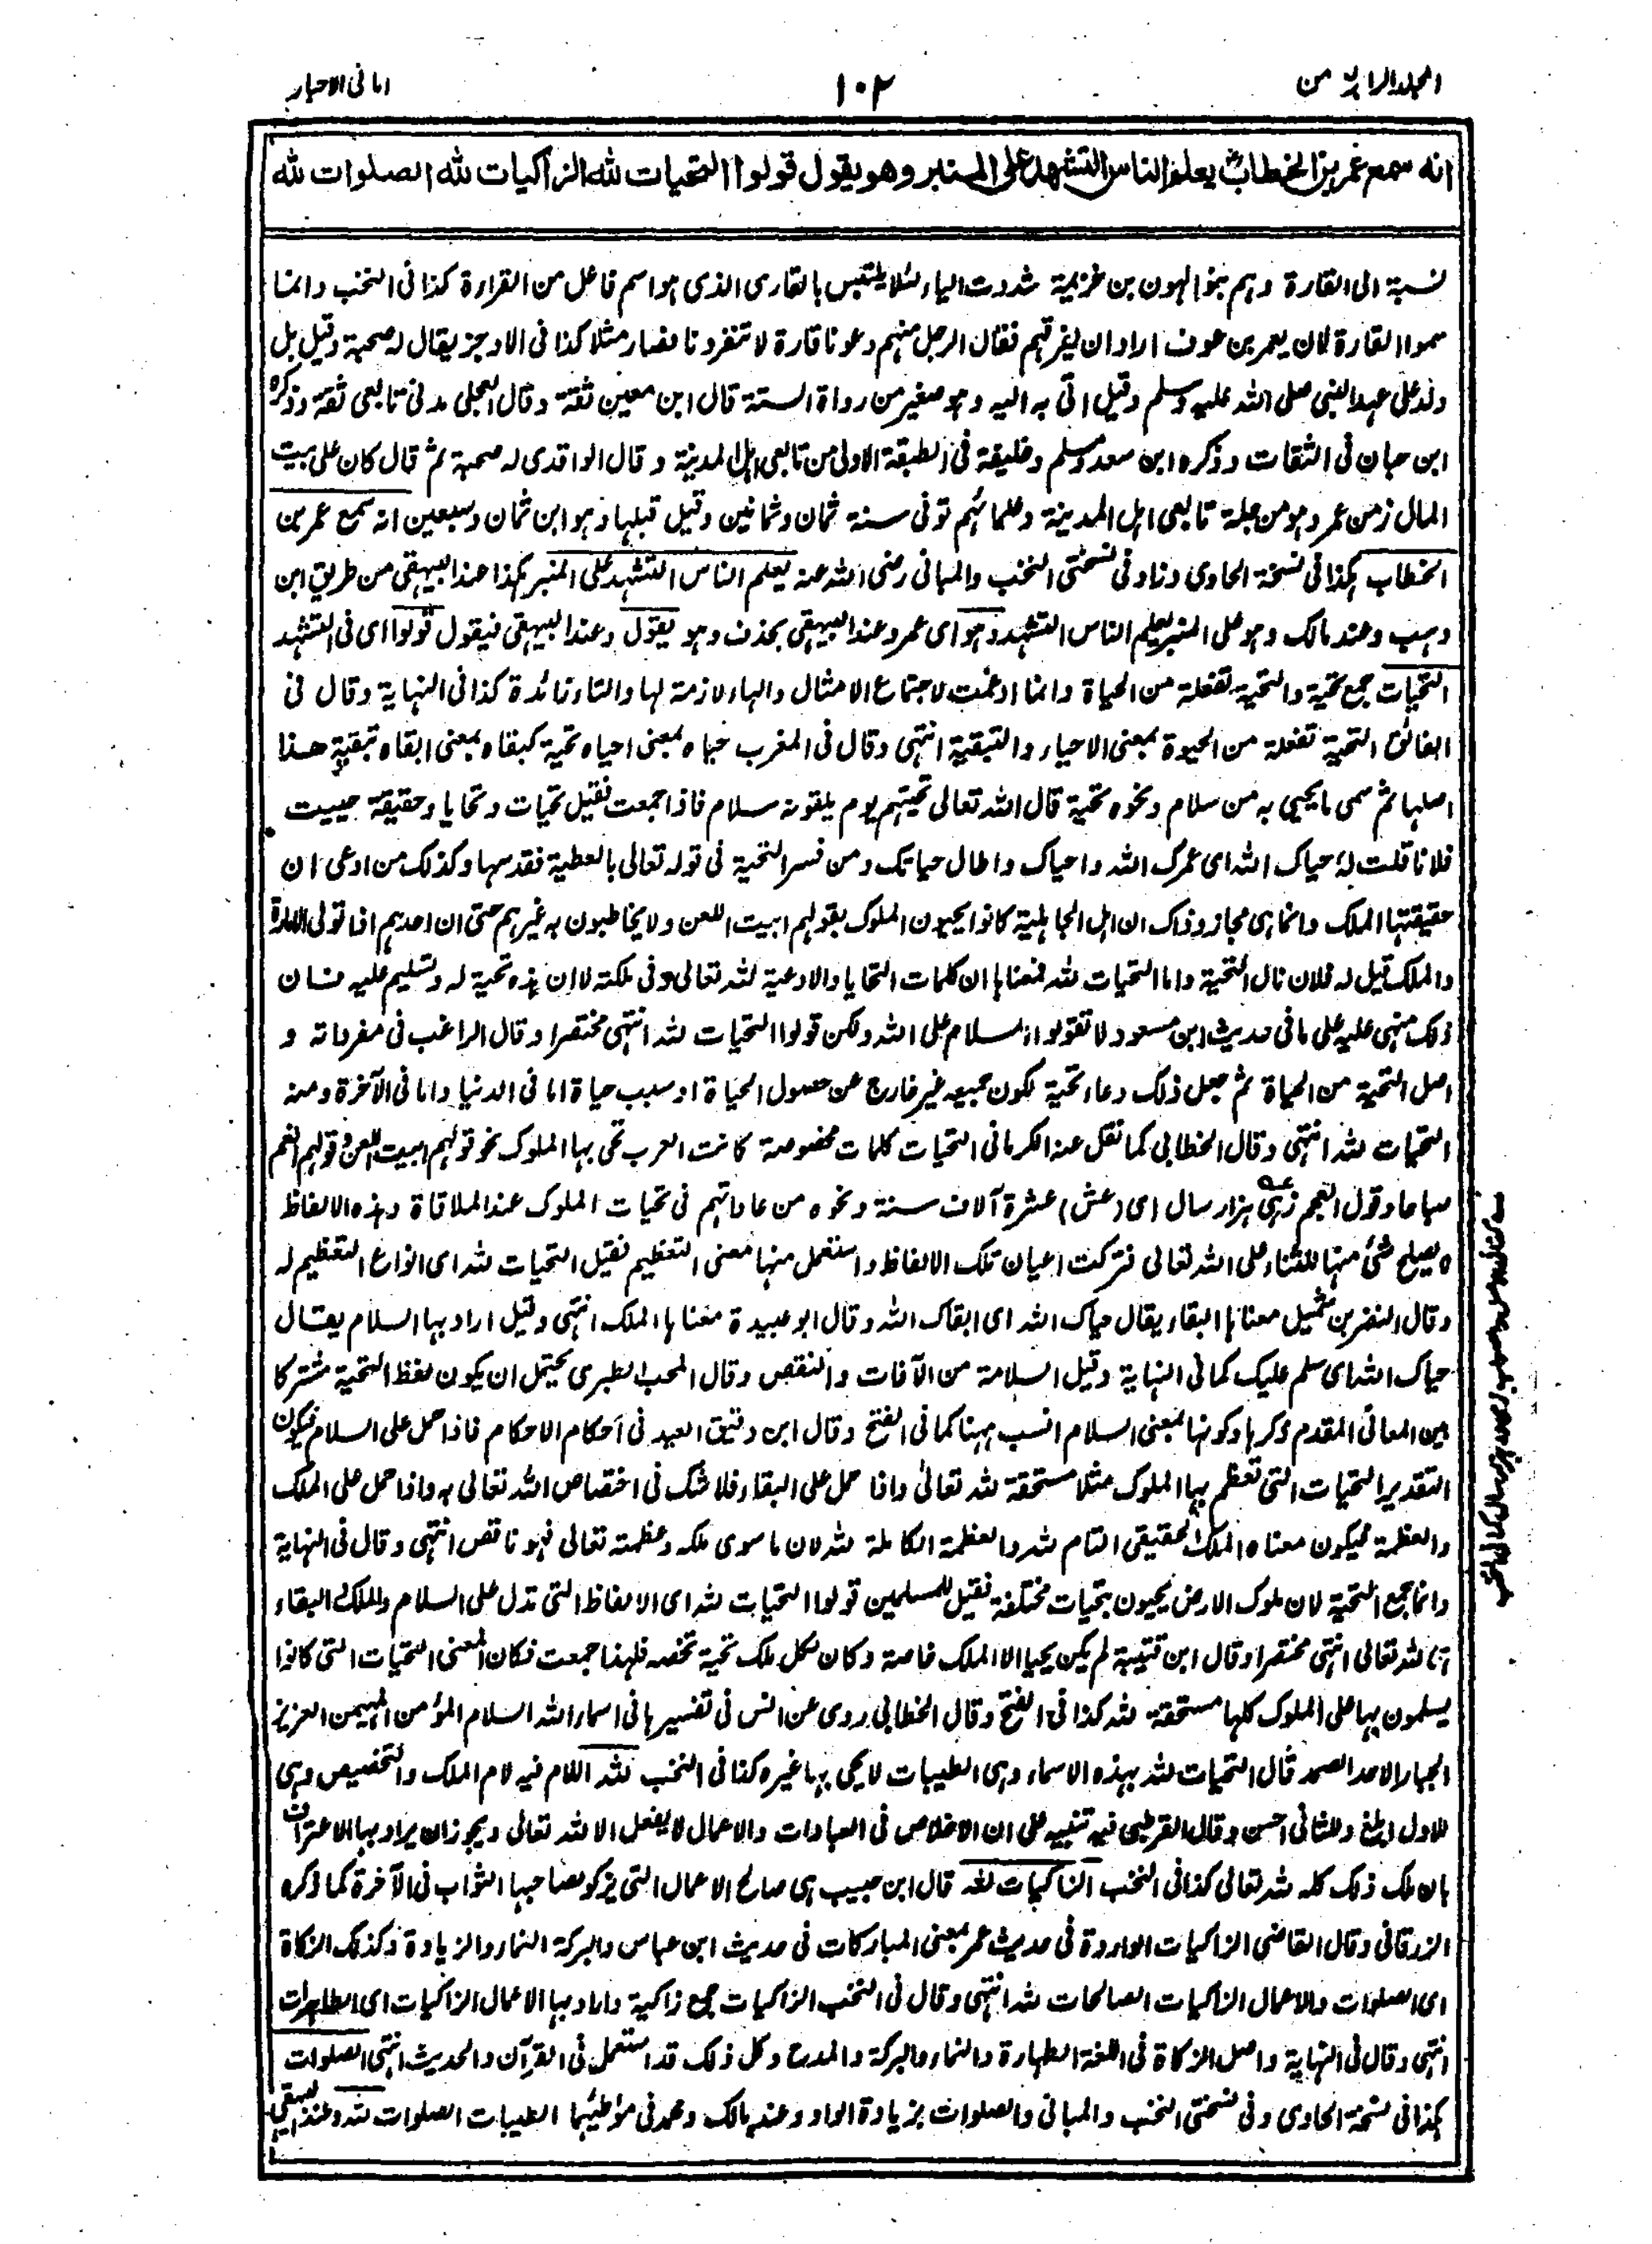 المجلد الرابع من
١٠٢
امانى الاحبار
انه سمع عمر بن الخطاب يعلم الناس التشهد على المنبر وهو يقول قولوا التحيات لله الزاكيات لله الصلوات لله
نسبة الى القارة وهم بنو الهون بن خزيمة شددت الياء لئلا يلتبس بالقارى الذى هو اسم فاعل من القراءة كذا فى النخب وانما
سموا القارة لان يعمر بن عوف اراد ان يفرقهم فقال الرجل منهم دعونا قارة لا تنفرونا فصار مثلا كذا فى الاوجز يقال له صحبة وقيل بل
ولد على عهد النبى صلى الله عليه وسلم وقيل اتى به اليه وهو صغير من رواة الستة قال ابن معين ثقة وقال العجلى مدنى تابعى ثقة وذكره
ابن حبان فى الثقات وذكره ابن سعد ومسلم وخليفة فى الطبقة الاولى من تابعى اهل المدينة وقال الواقدى له صحبة ثم قال كان على بيت
المال زمن عمر وهو من جلة تابعى اهل المدينة وعلمائهم توفى سنة ثمان وثمانين وقيل قبلها وهو ابن ثمان وسبعين انه سمع عمر بن
الخطاب هكذا فى نسخة الحاوى وزاد فى نسختى النخب والمبانى رضى الله عنه يعلم الناس التشهد على المنبر هكذا عند البيهقى من طريق ابن
وهب وعند مالك وهو على المنبر يعلم الناس التشهد وهو اى عمر وعند البيهقى بحذف وهو يقول وعند البيهقى فيقول قولوا اى فى التشهد
التحيات جمع تحية والتحية تفعلة من الحياة وانما ادغمت لاجتماع الامثال والهاء لازمة لها والتاء زائدة كذا فى النهاية وقال فى
الفائق التحية تفعلة من الحيوة بمعنى الاحياء والتبقية انتهى وقال فى المغرب حياه بمعنى احياه تحية كبقاه بمعنى ابقاه تبقية هذا
اصلها ثم سمى ما يحيى به من سلام ونحوه تحية قال الله تعالى تحيتهم يوم يلقونه سلام فاذا جمعت فقيل تحيات وتحايا وحقيقة حييت
فلانا قلت له حياك الله اى عمرك الله واحياك واطال حياتك ومن فسر التحية فى قوله تعالى بالعطية فقد سها وكذلك من ادعى ان
حقيقتها الملك وانما هى مجاز وذاك ان اهل الجاهلية كانوا يحيون الملوك بقولهم ابيت اللعن ولا يخاطبون به غيرهم حتى ان احدهم اذا تولى الامارة
والملك قيل له فلان نال التحية واما التحيات لله فمعناها ان كلمات التحايا والادعية لله تعالى وفى ملكته لا ان هذه تحية له وتسليم عليه فان
ذلك منهى عليه على ما فى حديث ابن مسعود لا تقولوا السلام على الله ولكن قولوا التحيات لله انتهى مختصرا وقال الراغب فى مفرداته و
اصل التحية من الحياة ثم جعل ذلك دعاء تحية لكون جميعه غير خارج عن حصول الحياة او سبب حياة اما فى الدنيا واما فى الآخرة ومنه
التحيات لله انتهى وقال الخطابى كما نقل عنه الكرمانى التحيات كلمات مخصوصة كانت العرب تحى بها الملوك نحو قولهم ابيت اللعن وقولهم انعم
صباحا وقول العجم زى هزار سال اى (عش) عشرة آلاف سنة ونحوه من عاداتهم فى تحيات الملوك عند الملاقاة وهذه الالفاظ
لا يصلح شئ منها للثناء على الله تعالى فتركت اعيان تلك الالفاظ واستعمل منها معنى التعظيم فقيل التحيات لله اى انواع التعظيم له
وقال النضر بن شميل معناها البقاء يقال حياك الله اى ابقاك الله وقال ابو عبيدة معناها الملك انتهى وقيل اراد بها السلام يقال
حياك الله اى سلم عليك كما فى النهاية وقيل السلامة من الآفات والنقص وقال المحب الطبرى يحتمل ان يكون لفظ التحية مشتركا
بين المعانى المقدم ذكرها وكونها بمعنى السلام انسب ههنا كما فى الفتح وقال ابن دقيق العيد فى احكام الاحكام فاذا حمل على السلام فيكون
التقدير التحيات التى تعظم بها الملوك مثلا مستحقة لله تعالى واذا حمل على البقاء فلا شك فى اختصاص الله تعالى به واذا حمل على الملك
والعظمة فيكون معناه الملك الحقيقى التام لله والعظمة الكاملة لله لان ما سوى ملكه وعظمته تعالى فهو ناقص انتهى وقال فى النهاية
وانما جمع التحية لان ملوك الارض يحيون بتحيات مختلفة فقيل للمسلمين قولوا التحيات لله اى الالفاظ التى تدل على السلام والملك البقاء
لله تعالى انتهى مختصرا وقال ابن قتيبة لم يكن يحيا الا الملك خاصة وكان لكل ملك تحية تخصه فلهذا جمعت فكان المعنى التحيات التى كانوا
يسلمون بها على الملوك كلها مستحقة لله كذا فى الفتح وقال الخطابى روى عن انس فى تفسيرها فى اسماء الله السلام المؤمن المهيمن العزيز
الجبار الاحد الصمد قال التحيات لله بهذه الاسماء وهى الطيبات لا يحى بها غيره كذا فى النخب لله اللام فيه لام الملك والتخصيص وهى
للاول ابلغ وللثانى احسن وقال القرطبى فيه تنبيه على ان الاخلاص فى العبادات والاعمال لا يفعل الا لله تعالى ويجوز ان يراد بها الاعتراف
بان ملك ذلك كله لله تعالى كذا فى النخب الزاكيات لله قال ابن حبيب هى صالح الاعمال التى يزكو لصاحبها الثواب فى الآخرة كما ذكره
الزرقانى وقال القاضى الزاكيات الواردة فى حديث عمر بمعنى المباركات فى حديث ابن عباس والبركة النماء والزيادة وكذلك الزكاة
اى الصلوات والاعمال الزاكيات الصالحات لله انتهى وقال فى النخب الزاكيات جمع زاكية واراد بها الاعمال الزاكيات اى الطاهرات
انتهى وقال فى النهاية واصل الزكاة فى اللغة الطهارة والنماء والبركة والمدح وكل ذلك قد استعمل فى القرآن والحديث انتهى الصلوات
هكذا فى نسخة الحاوى وفى نسختى النخب والمبانى والصلوات بزيادة الواو وعند مالك ومحمد فى مؤطيهما الطيبات الصلوات لله وعند البيهقى